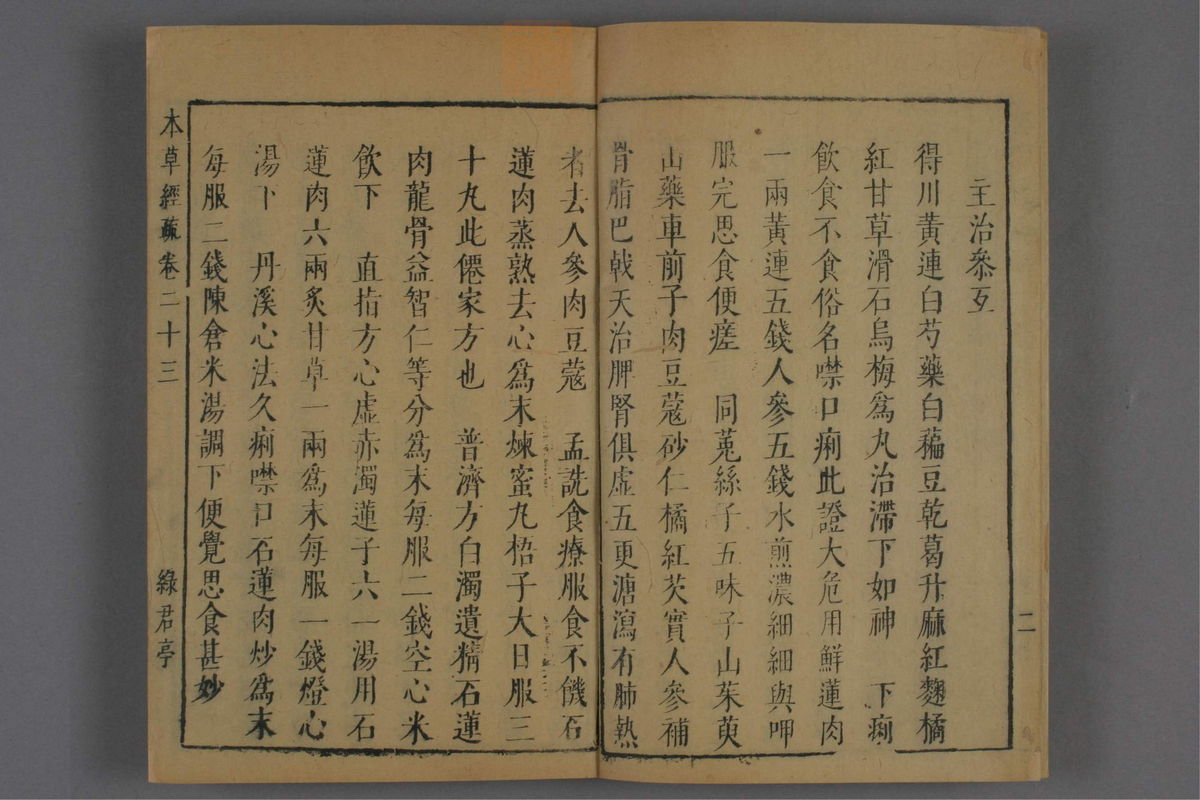 二
主治叅互
得川黃連白芍藥白藊豆乾葛升麻紅麴橘
紅甘草滑石烏梅爲丸治滯下如神　下痢
飲食不食俗名噤口痢此證大危用鮮蓮肉
一兩黃連五錢人參五錢水煎濃細細與呷
服完思食便瘥　同菟絲子五味子山茱萸
山藥車前子肉豆蔻砂仁橘紅芡實人參補
骨脂巴戟天治脾腎俱虛五更溏瀉有肺熱
者去人參肉豆蔻　孟詵食療服食不饑石
蓮肉蒸熟去心爲末煉蜜丸梧子大日服三
十丸此僊家方也　普濟方白濁遺精石蓮
肉龍骨益智仁等分爲末每服二錢空心米
飲下　直指方心虛赤濁蓮子六一湯用石
蓮肉六兩炙甘草一兩爲末每服一錢燈心
湯下　丹溪心法久痢噤口石蓮肉炒爲末
每服二錢陳倉米湯調下便覺思食甚妙
本草經疏卷二十三
綠君亭